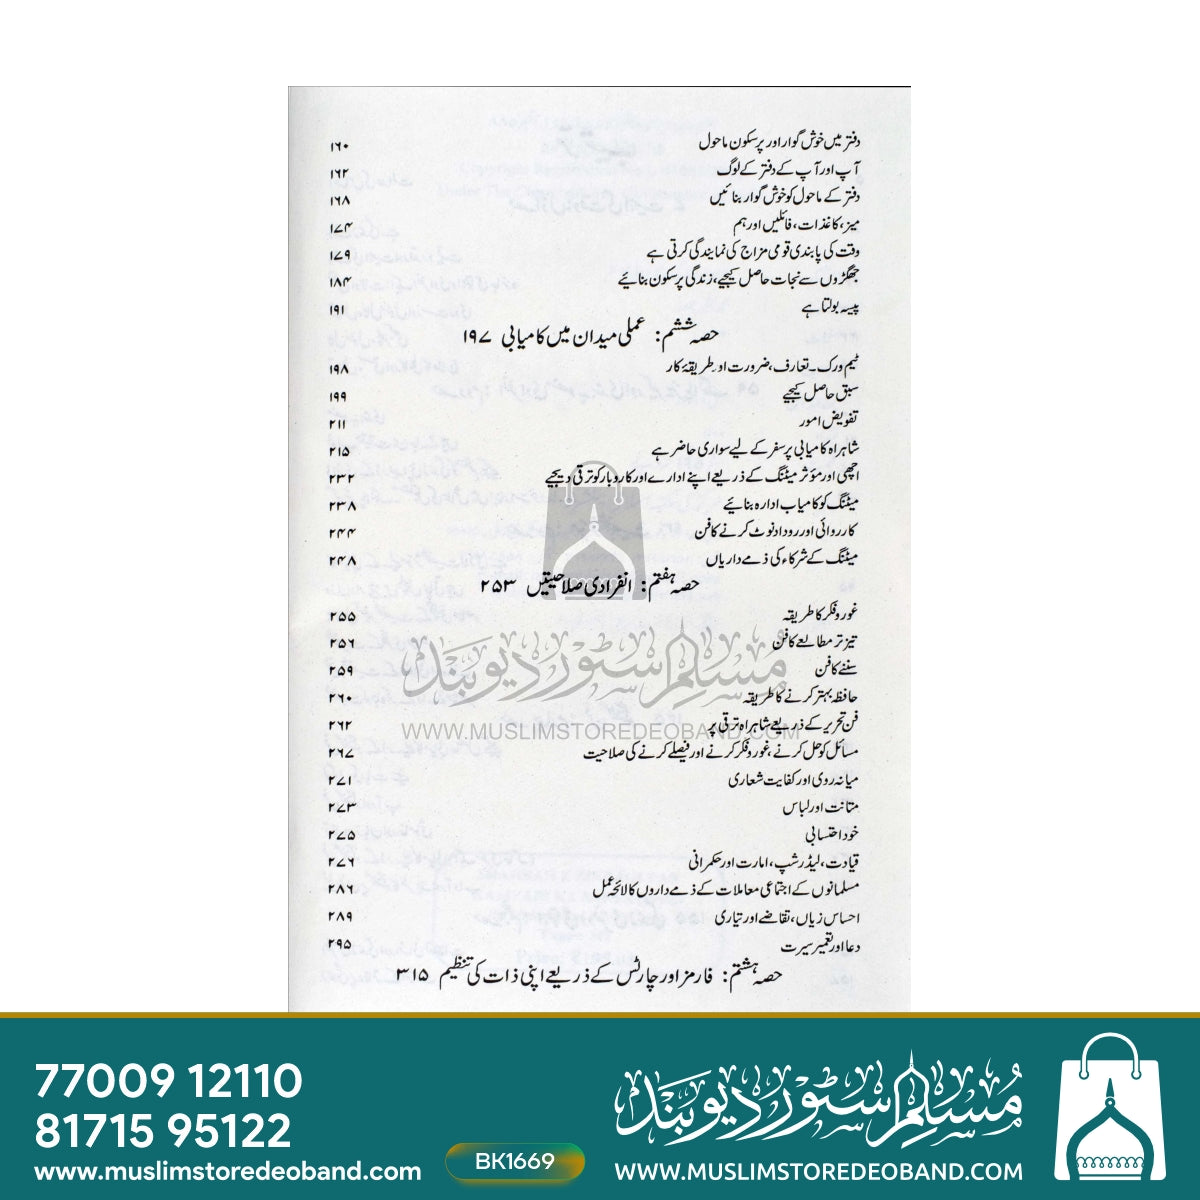 دفتر میں خوش گوار اور پرسکون ماحول ۱۶۰
آپ اور آپ کے دفتر کے لوگ ۱۶۲
دفتر کے ماحول کو خوش گوار بنائیں ۱۶۸
میز، کاغذات، فائلیں اور ہم ۱۷۴
وقت کی پابندی قومی مزاج کی نمایندگی کرتی ہے ۱۷۹
جھگڑوں سے نجات حاصل کیجیے، زندگی پرسکون بنائیے ۱۸۴
پیسہ بولتا ہے ۱۹۱
حصہ ششم: عملی میدان میں کامیابی ۱۹۷
ٹیم ورک۔ تعارف، ضرورت اور طریقۂ کار ۱۹۸
سبق حاصل کیجیے ۱۹۹
تفویض امور ۲۱۱
شاہراہ کامیابی پر سفر کے لیے سواری حاضر ہے ۲۱۵
اچھی اور مؤثر میٹنگ کے ذریعے اپنے ادارے اور کاروبار کو ترقی دیجیے ۲۳۲
میٹنگ کو کامیاب ادارہ بنائیے ۲۳۸
کارروائی اور روداد نوٹ کرنے کا فن ۲۴۴
میٹنگ کے شرکاء کی ذمے داریاں ۲۴۸
حصہ ہفتم: انفرادی صلاحیتیں ۲۵۳
غور و فکر کا طریقہ ۲۵۵
تیز تر مطالعے کا فن ۲۵۶
سننے کا فن ۲۵۹
حافظہ بہتر کرنے کا طریقہ ۲۶۰
فن تحریر کے ذریعے شاہراہ ترقی پر ۲۶۲
مسائل کو حل کرنے، غور و فکر کرنے اور فیصلے کرنے کی صلاحیت ۲۶۷
میانہ روی اور کفایت شعاری ۲۷۱
متانت اور لباس ۲۷۳
خود احتسابی ۲۷۵
قیادت، لیڈرشپ، امارت اور حکمرانی ۲۷۶
مسلمانوں کے اجتماعی معاملات کے ذمے داروں کا لائحہ عمل ۲۸۶
احساس زیاں، تقاضے اور تیاری ۲۸۹
دعا اور تعمیر سیرت ۲۹۵
حصہ ہشتم: فارمز اور چارٹس کے ذریعے اپنی ذات کی تنظیم ۳۱۵
مسلم سٹور دیوبند
WWW.MUSLIMSTOREDEOBAND.COM
77009 12110
81715 95122
www.muslimstoredeoband.com
BK1669
مسلم سٹور دیوبند
WWW.MUSLIMSTOREDEOBAND.COM